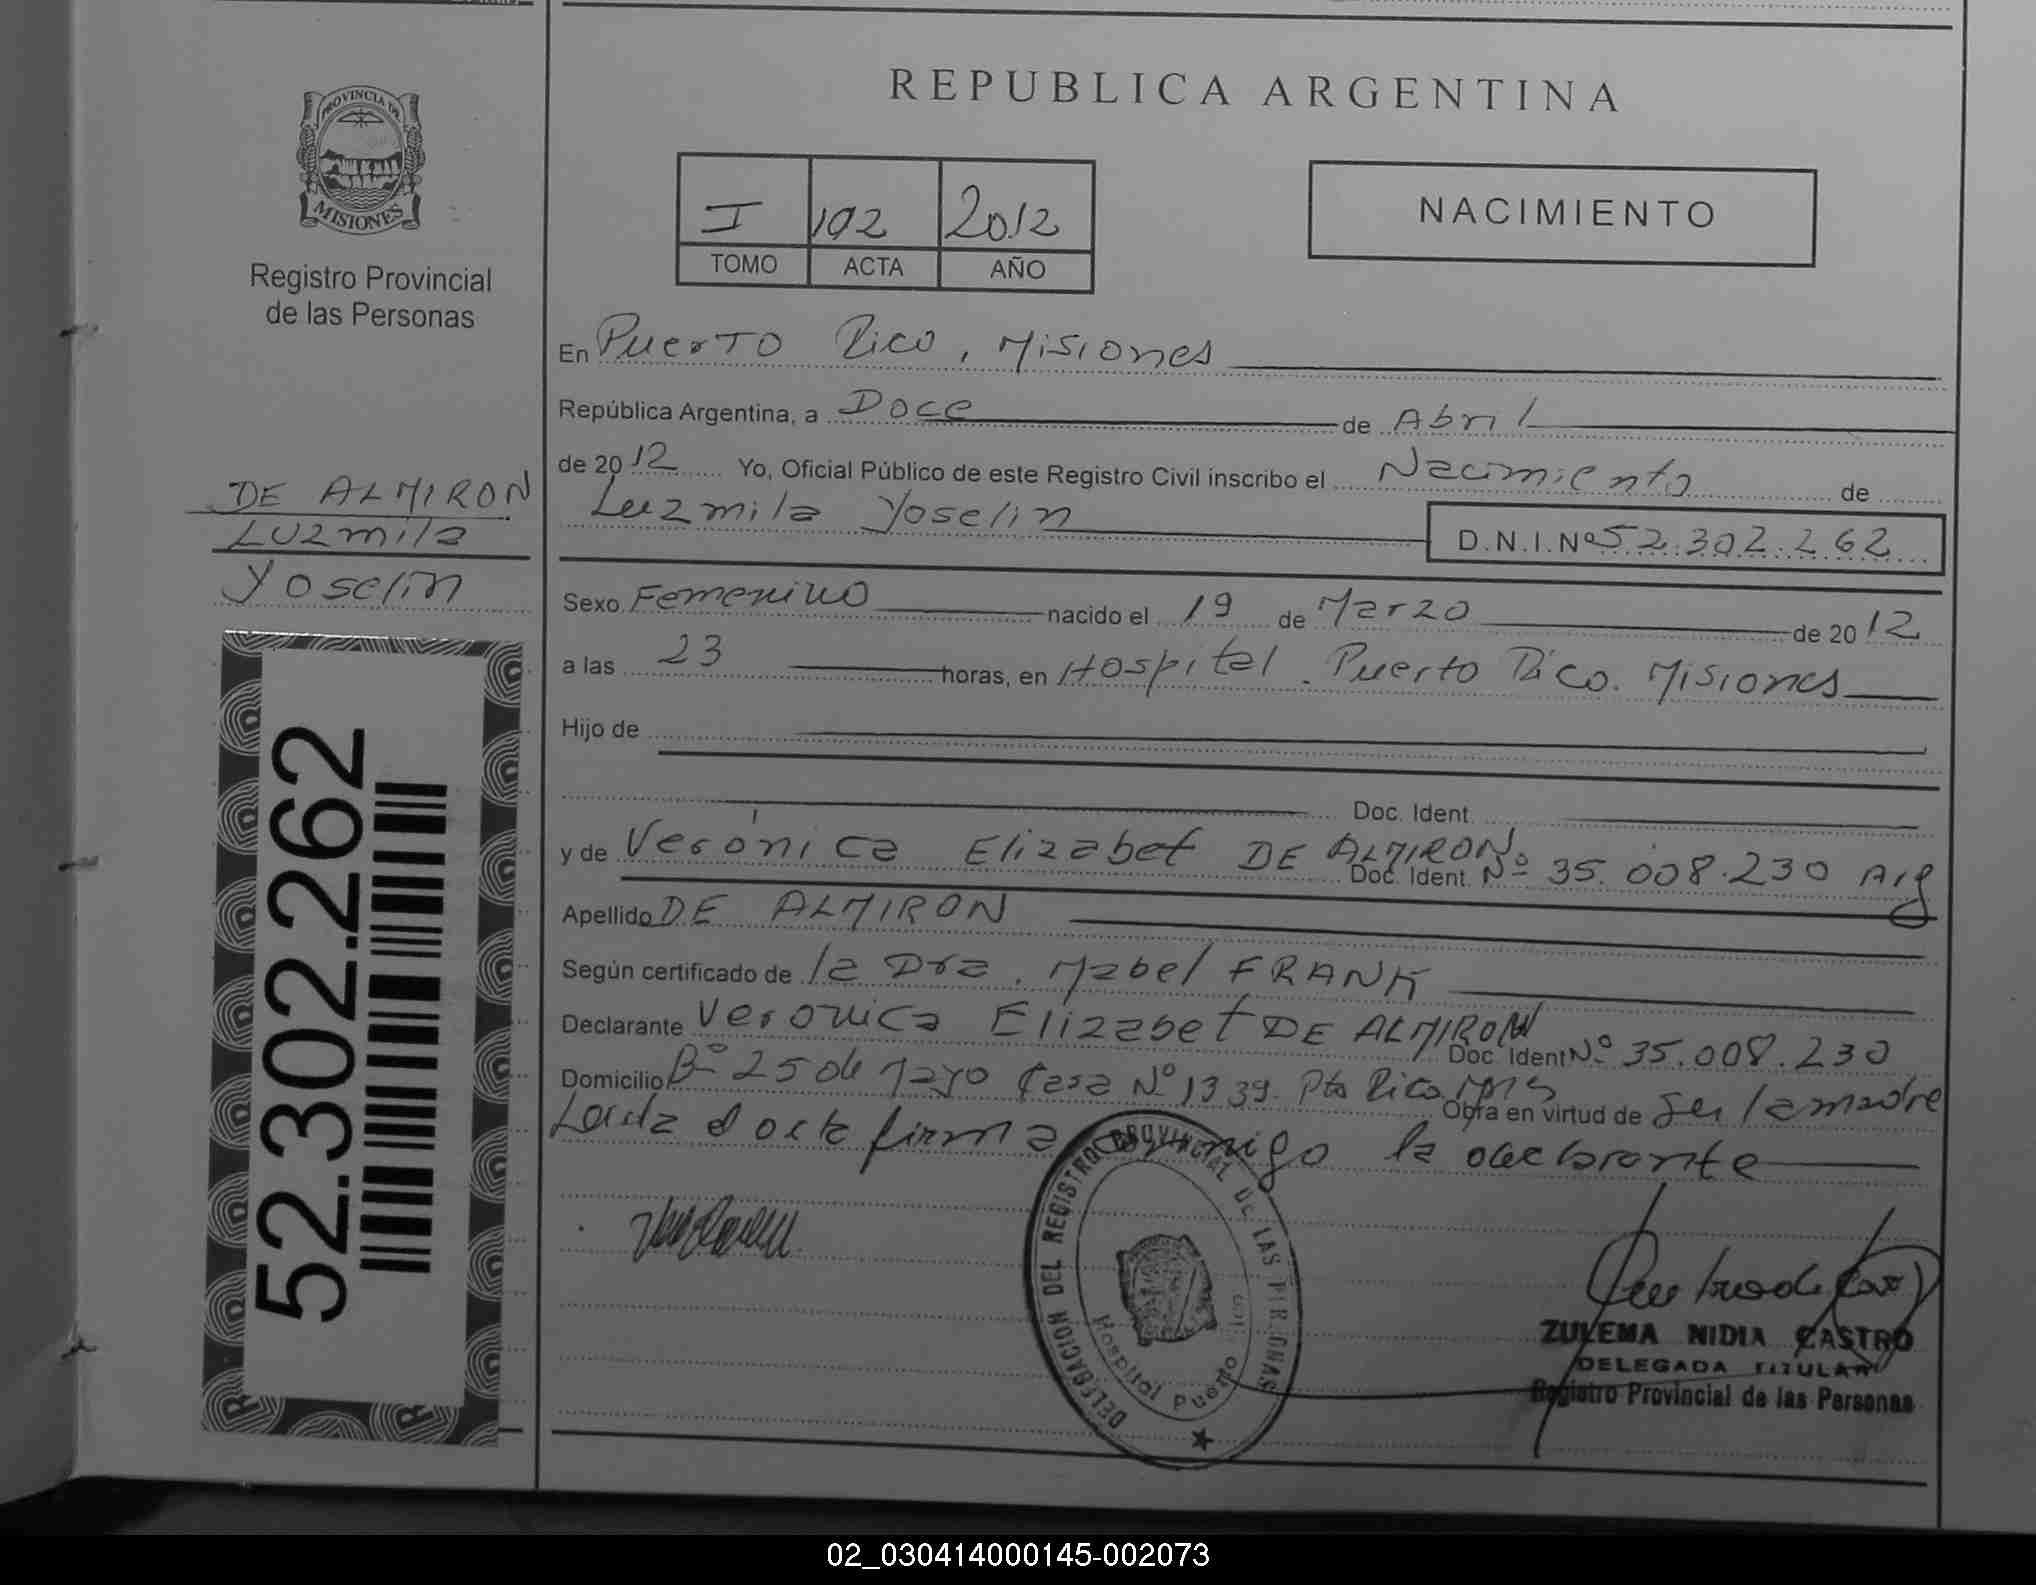 REPUBLICA ARGENTINA
PROVINCIA DE
MISIONES
Registro Provincial
de las Personas
I 192 2012
TOMO ACTA AÑO
NACIMIENTO
En Puerto Rico, Misiones
República Argentina, a Doce de Abril
de 2012 Yo, Oficial Público de este Registro Civil inscribo el Nacimiento de
Luzmila Yoselin D.N.I.Nº 52.302.262
DE ALMIRON
Luzmila
Yoselin
Sexo Femenino nacido el 19 de Marzo de 2012
a las 23 horas, en Hospital. Puerto Rico. Misiones
Hijo de
Doc. Ident.
y de Verónica Elizabet DE ALMIRON Doc. Ident. Nº 35.008.230 Arg
Apellido DE ALMIRON
Según certificado de la Dra. Mabel FRANK
Declarante Veronica Elizabet DE ALMIRON Doc. Ident Nº 35.008.230
Domicilio Bº 25 de Mayo Casa Nº 1339. Pto Rico Mns Obra en virtud de ser la madre
Leida el acta firma conmigo la declarante
52.302.262
DELEGACION DEL REGISTRO PROVINCIAL DE LAS PERSONAS
Hospital Puerto
ZULEMA NIDIA CASTRO
DELEGADA TITULAR
Registro Provincial de las Personas
02_030414000145-002073